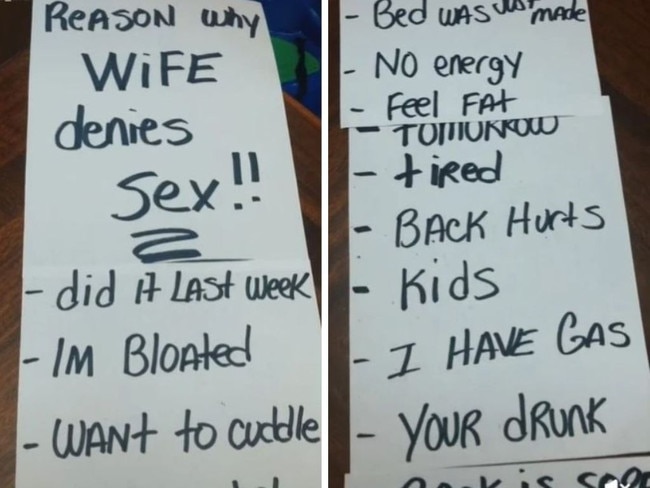 REASON why
WiFE
denies
Sex!!
- did it LAST week
- IM BloAted
- WANt to cuddle
- Bed WAS JUST MADE
- NO energy
- Feel FAt
- TOMORROW
- tiRed
- BACK HURtS
- Kids
- I HAVE GAS
- YOUR dRUNK
is